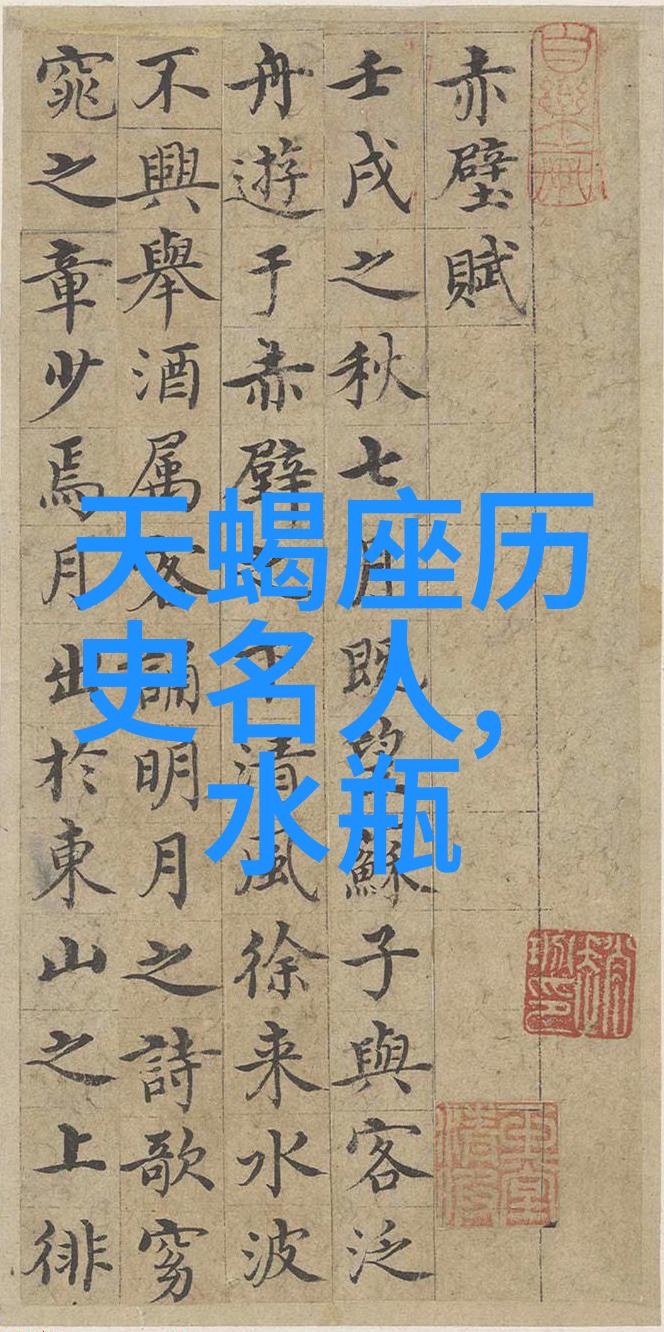 赤壁賦
壬戌之秋七月既望蘇子與客泛
舟遊于赤壁之下清風徐来水波
不興舉酒属客誦明月之詩歌窈
窕之章少焉月出於東山之上徘
天蝎座历
史名人,
水瓶